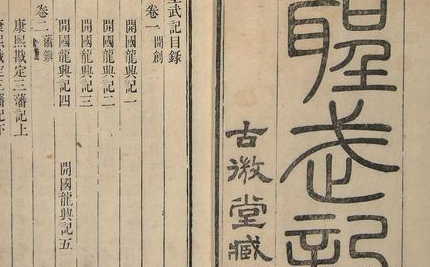 聖武記
古微堂藏
聖武記目錄
卷一 開創
開國龍興記一
開國龍興記二
開國龍興記三
開國龍興記四 開國龍興記五
卷二 藩鎮
康熙戡定三藩記上
康熙戡定三藩記下